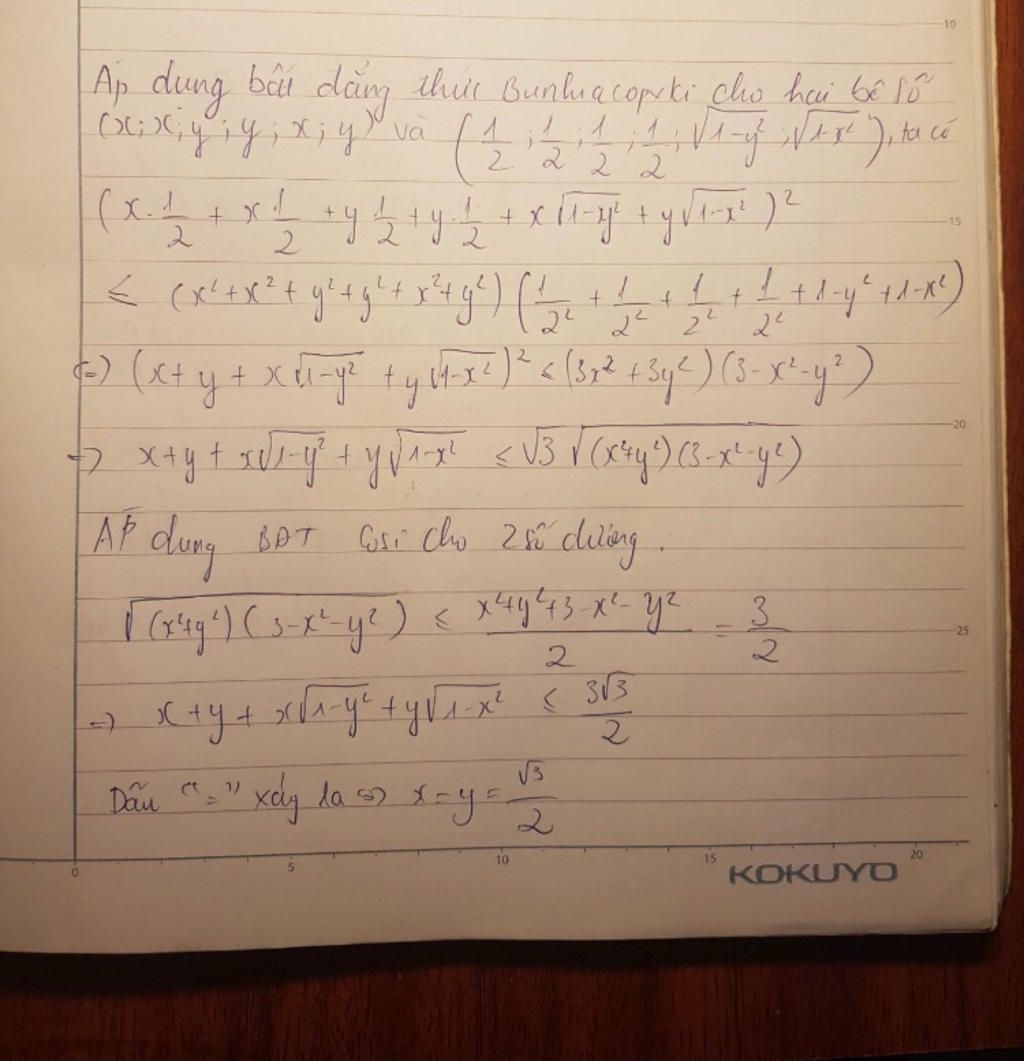 10
Áp dụng bất đẳng thức Bunhiacopxki cho hai bộ số
(x; x; y; y; x; y) và (1/2; 1/2; 1/2; 1/2; √(1-y²); √(1-x²)), ta có
(x·1/2 + x 1/2 + y 1/2 + y·1/2 + x√(1-y²) + y√(1-x²))²
15
≤ (x²+x²+y²+y²+x²+y²)(1/2² + 1/2² + 1/2² + 1/2² + 1-y²+1-x²)
(=) (x+y+x√(1-y²) + y√(1-x²))² ≤ (3x²+3y²)(3-x²-y²)
20
=) x+y+x√(1-y²) + y√(1-x²) ≤ √3 √((x²+y²)(3-x²-y²))
ÁP dụng BĐT Cosi cho 2 số dương.
√((x²+y²)(3-x²-y²)) ≤ (x²+y²+3-x²-y²)/2 = 3/2
25
=) x+y+x√(1-y²)+y√(1-x²) ≤ 3√3/2
Dấu "=" xảy ra (=) x=y=√3/2
0 5 10 15 20
KOKUYO